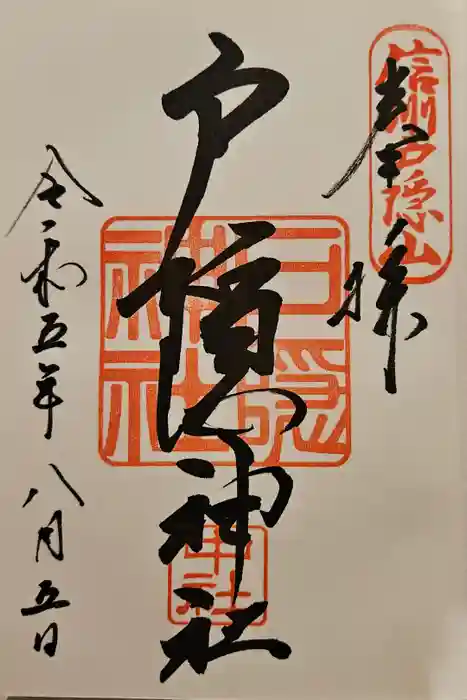 奉拝
信州戸隠山
戸隠神社
戸隠神社
中社
令和五年八月五日